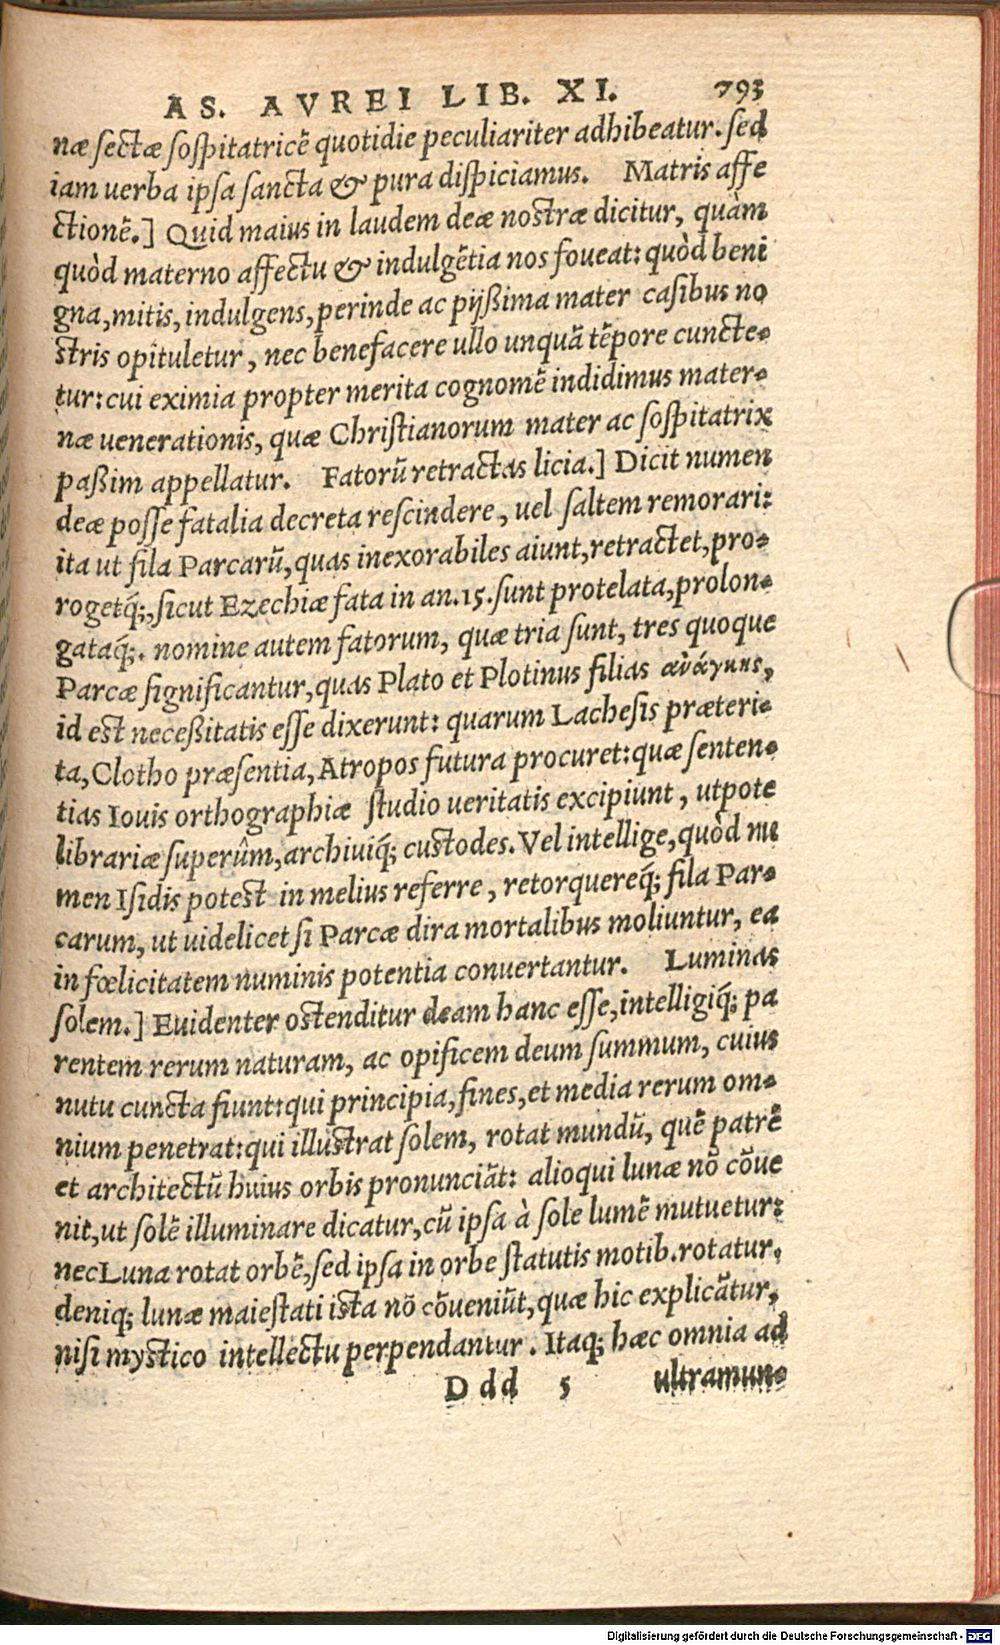 AS. AVREI LIB. XI. 793
næ sectæ sospitatricē quotidie peculiariter adhibeatur. sed
iam uerba ipsa sancta & pura dispiciamus. Matris affe
ctionē.] Quid maius in laudem deæ nostræ dicitur, quàm
quòd materno affectu & indulgētia nos foueat: quòd beni
gna, mitis, indulgens, perinde ac pijßima mater casibus no
stris opituletur, nec benefacere ullo unquā tēpore cuncte-
tur: cui eximia propter merita cognomē indidimus mater-
næ uenerationis, quæ Christianorum mater ac sospitatrix
paßim appellatur. Fatorū retractas licia.] Dicit numen
deæ posse fatalia decreta rescindere, uel saltem remorari:
ita ut fila Parcarū, quas inexorabiles aiunt, retractet, pro-
rogetq́;, sicut Ezechiæ fata in an. 15. sunt protelata, prolon-
gataq́;. nomine autem fatorum, quæ tria sunt, tres quoque
Parcæ significantur, quas Plato et Plotinus filias ἀνάγκης,
id est neceßitatis esse dixerunt: quarum Lachesis præteri-
ta, Clotho præsentia, Atropos futura procuret: quæ senten-
tias Iouis orthographiæ studio ueritatis excipiunt, utpote
librariæ superûm, archiuiq́; custodes. Vel intellige, quòd nu
men Isidis potest in melius referre, retorquereq́; fila Par-
carum, ut uidelicet si Parcæ dira mortalibus moliuntur, ea
in fœlicitatem numinis potentia conuertantur. Luminas
solem.] Euidenter ostenditur deam hanc esse, intelligiq́; pa
rentem rerum naturam, ac opificem deum summum, cuius
nutu cuncta fiunt: qui principia, fines, et media rerum om-
nium penetrat: qui illustrat solem, rotat mundū, quē patrē
et architectū huius orbis pronunciāt: alioqui lunæ nō cōue
nit, ut solē illuminare dicatur, cū ipsa à sole lumē mutuetur:
nec Luna rotat orbē, sed ipsa in orbe statutis motib. rotatur,
deniq; lunæ maiestati ista nō cōueniūt, quæ hic explicātur,
nisi mystico intellectu perpendantur. Itaq; hæc omnia ad
Ddd 5 ultramun-
Digitalisierung gefördert durch die Deutsche Forschungsgemeinschaft - DFG